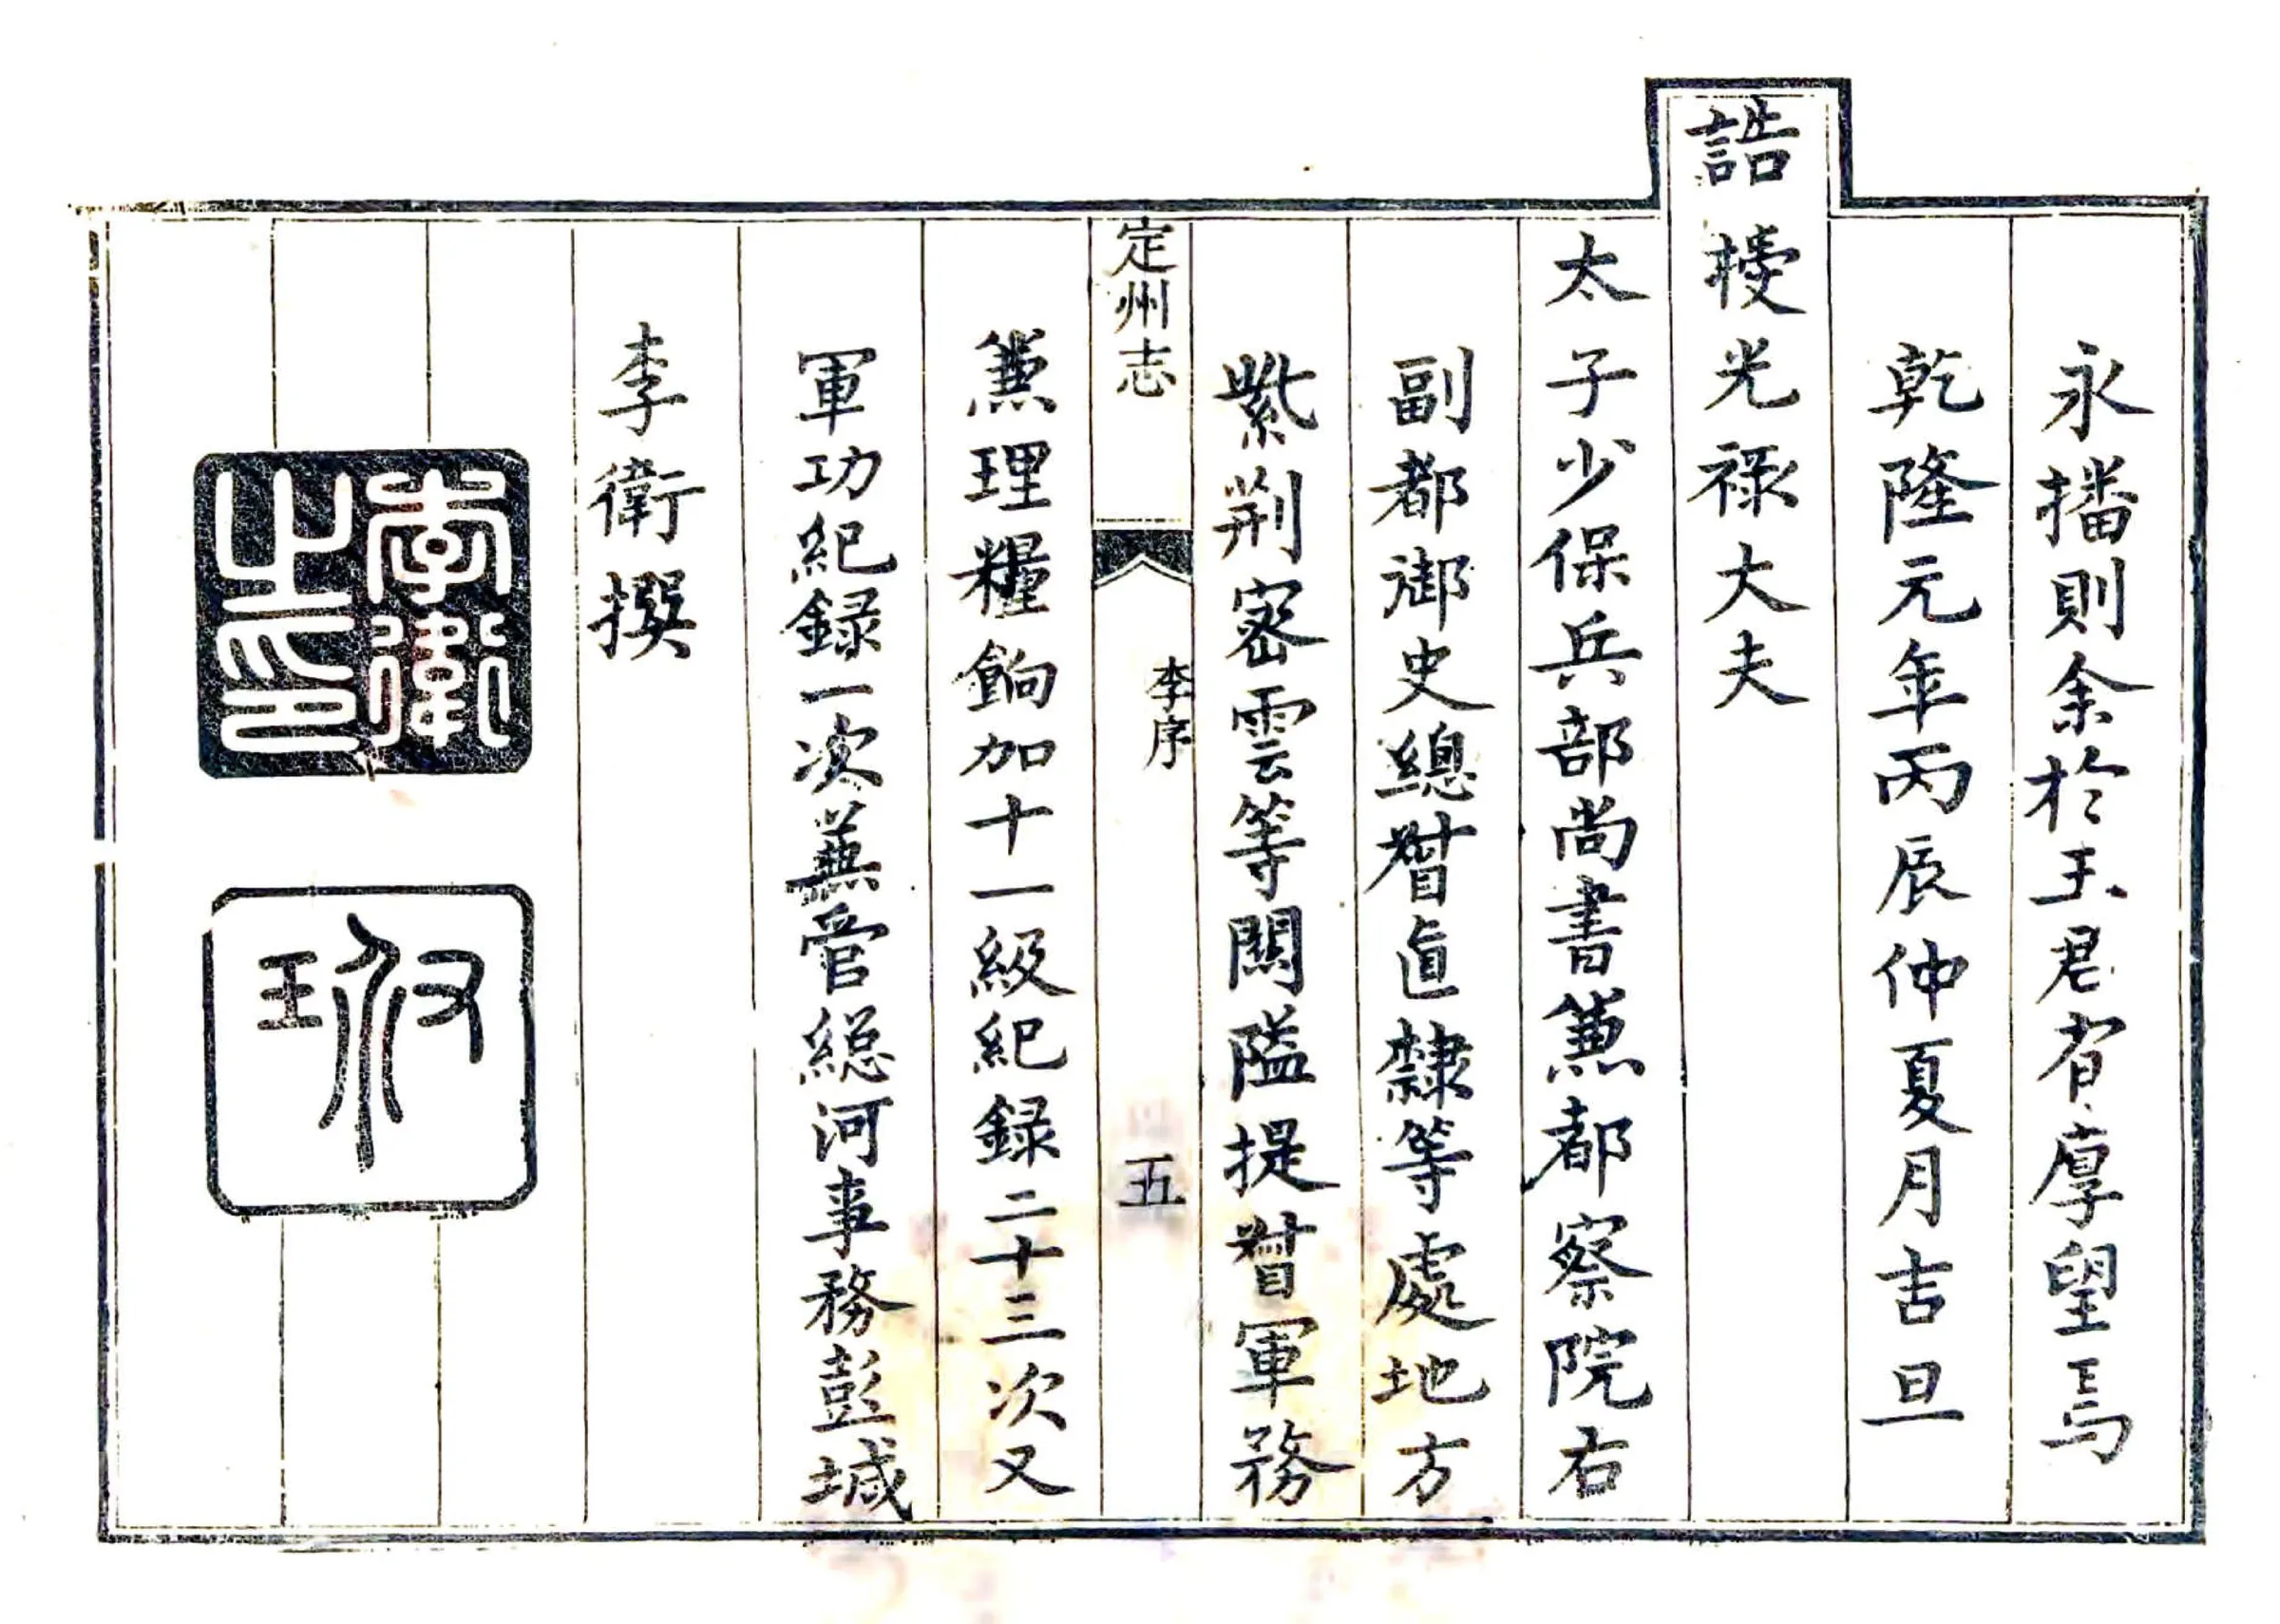 永播則余於王君有厚望焉
乾隆元年丙辰仲夏月吉旦
誥授光祿大夫
太子少保兵部尚書兼都察院右
副都御史總督直隸等處地方
紫荆密雲等關隘提督軍務
定州志
李序
五
兼理糧餉加十一級紀録二十三次又
軍功紀録一次兼管總河事務彭城
李衛撰
李衛之印